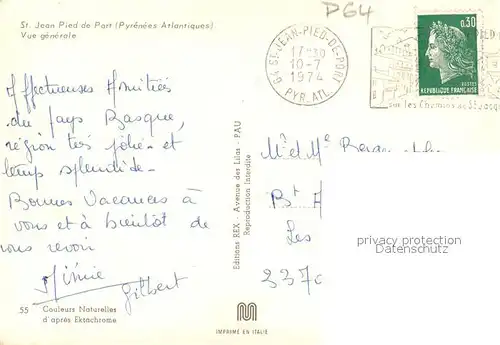 St. Jean Pied de Port (Pyrénées Atlantiques)
Vue générale
D64
64 ST-JEAN-PIED-DE-PORT
17 H 30
10-7
1974
PYR. ATL.
0,30
POSTES
REPUBLIQUE FRANÇAISE
sur les Chemins de St Jacq
Affectueuses Amitiées
du pays Basque,
région très jolie et
temps splendide -
Bonnes Vacances à
vous et à bientôt de
vous revoir
Mimie
Gilbert
Editions REX - Avenue des Lilas - PAU
Reproduction Interdite
Mr et Me
Bt A
Les
privacy protection
Datenschutz
55 Couleurs Naturelles
d'après Ektachrome
IMPRIMÉ EN ITALIE